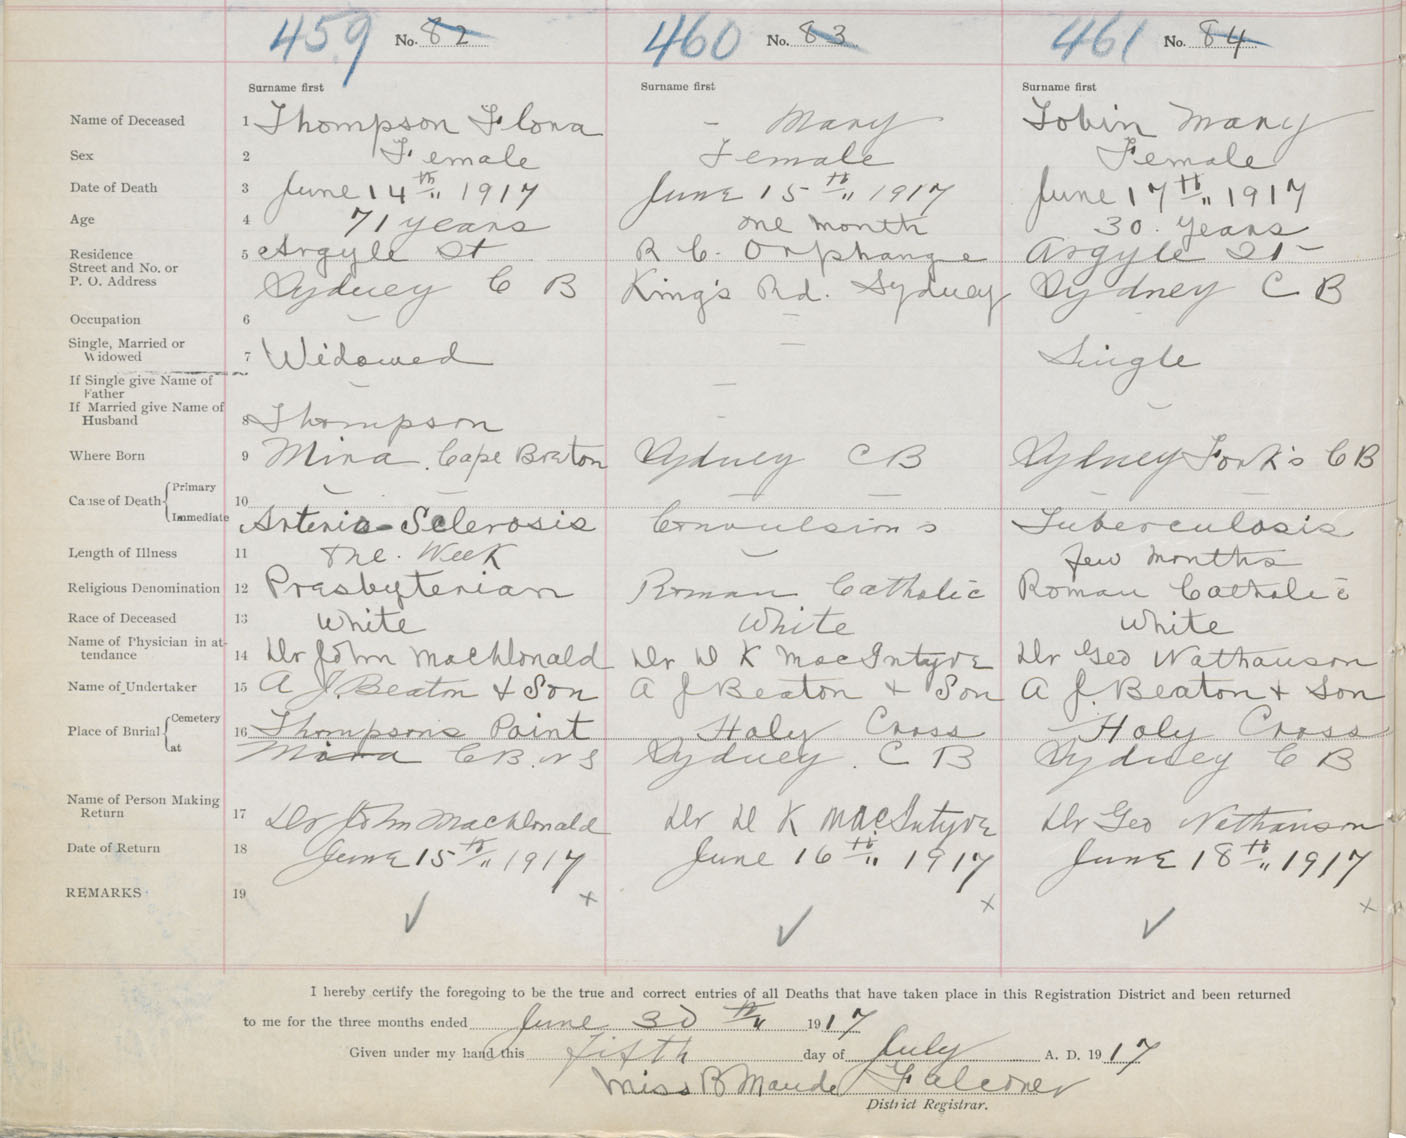 459 No. 82 460 No. 83 461 No. 84
Surname first Surname first Surname first
Name of Deceased 1 Thompson Flora – Mary Tobin Mary
Sex 2 Female Female Female
Date of Death 3 June 14th 1917 June 15th 1917 June 17th 1917
Age 4 71 years one month 30 years
Residence 5 Argyle St R C. Orphange Argyle St
Street and No. or
P. O. Address Sydney C B King's Rd. Sydney Sydney C B
Occupation 6 – – –
Single, Married or
Widowed 7 Widowed – Single
If Single give Name of
Father – – –
If Married give Name of
Husband 8 Thompson –
Where Born 9 Mira, Cape Breton Sydney C B Sydney Fork's C B
Cause of Death Primary 10 – – –
Immediate Arterio-Sclerosis Convulsions Tuberculosis
Length of Illness 11 One. Week – few months
Religious Denomination 12 Presbyterian Roman Catholic Roman Catholic
Race of Deceased 13 White White White
Name of Physician in at-
tendance 14 Dr John MacDonald Dr D K MacIntyre Dr Geo Nathanson
Name of Undertaker 15 A J. Beaton & Son A J Beaton & Son A J. Beaton & Son
Place of Burial Cemetery 16 Thompsons Point Holy Cross Holy Cross
at Mira C B. N S Sydney. C B Sydney C B
Name of Person Making
Return 17 Dr John MacDonald Dr D K MacIntyre Dr Geo Nathanson
Date of Return 18 June 15th 1917 June 16th 1917 June 18th 1917
REMARKS 19 x x x
✓ ✓ ✓
I hereby certify the foregoing to be the true and correct entries of all Deaths that have taken place in this Registration District and been returned
to me for the three months ended June 30th 1917
Given under my hand this fifth day of July A. D. 1917
Miss B Maude Falconer
District Registrar.